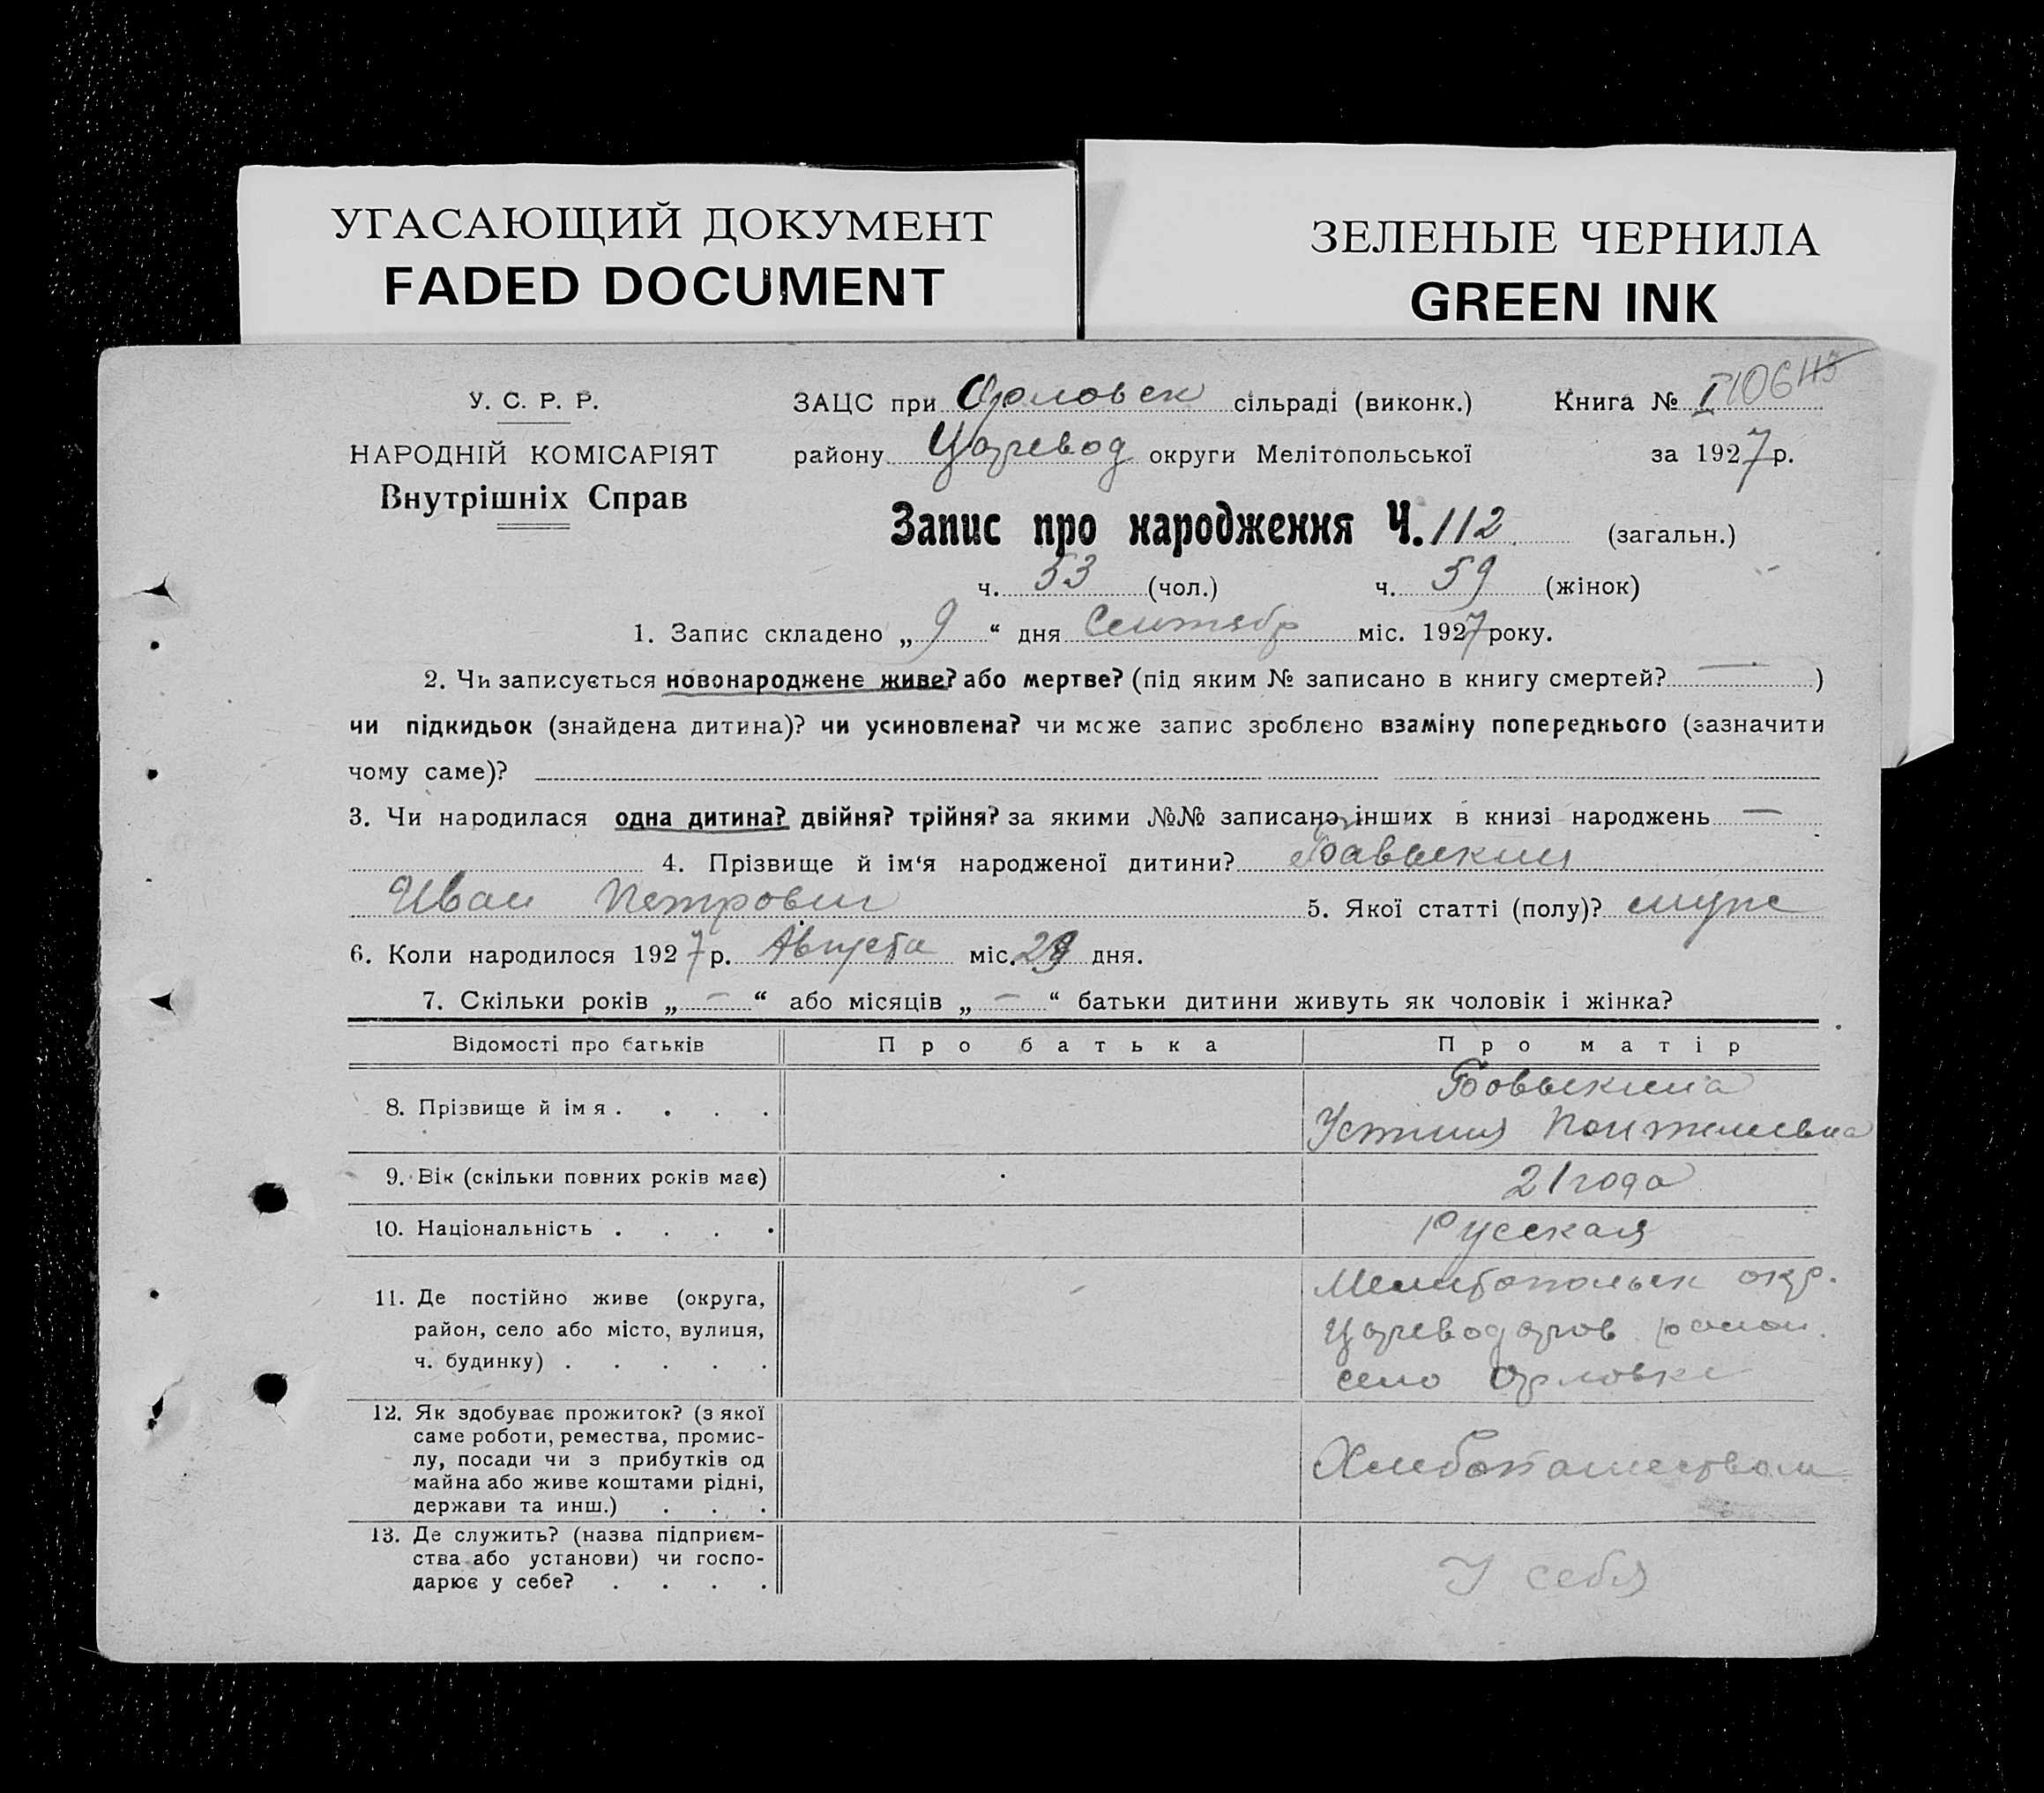 УГАСАЮЩИЙ ДОКУМЕНТ
FADED DOCUMENT
ЗЕЛЕНЫЕ ЧЕРНИЛА
GREEN INK
У. С. Р. Р.
НАРОДНІЙ КОМІСАРІЯТ
Внутрішніх Справ
ЗАЦС при Орловск сільраді (виконк.) Книга № I 106
району Царевод округи Мелітопольської за 1927 р.
Запис про народження Ч. 112 (загальн.)
ч. 53 (чол.) ч. 59 (жінок)
1. Запис складено „ 9 “ дня Сентябр міс. 1927 року.
2. Чи записується новонароджене живе? або мертве? (під яким № записано в книгу смертей? — )
чи підкидьок (знайдена дитина)? чи усиновлена? чи може запис зроблено взаміну попереднього (зазначити
чому саме)?
3. Чи народилася одна дитина? двійня? трійня? за якими №№ записано інших в книзі народжень —
4. Прізвище й ім‘я народженої дитини? Бавыкин
Иван Петрович 5. Якої статті (полу)?
6. Коли народилося 1927 р. Августа міс. дня.
7. Скільки років „ — “ або місяців „ — “ батьки дитини живуть як чоловік і жінка?
Відомості про батьків Про батька Про матір
8. Прізвище й ім я . . . . Бовыкина
Устиния
9. Вік (скільки повних років має) 21 года
10. Національність . . . . Русская
11. Де постійно живе (округа, Мелитопольск окр.
район, село або місто, вулиця, Цареводаров район.
ч. будинку) . . . . . село Орловка
12. Як здобуває прожиток? (з якої
саме роботи, ремества, промис-
лу, посади чи з прибутків од
майна або живе коштами рідні,
держави та инш.) . . . Хлебопашеством
13. Де служить? (назва підприєм-
ства або установи) чи госпо-
дарює у себе? . . . . У себя